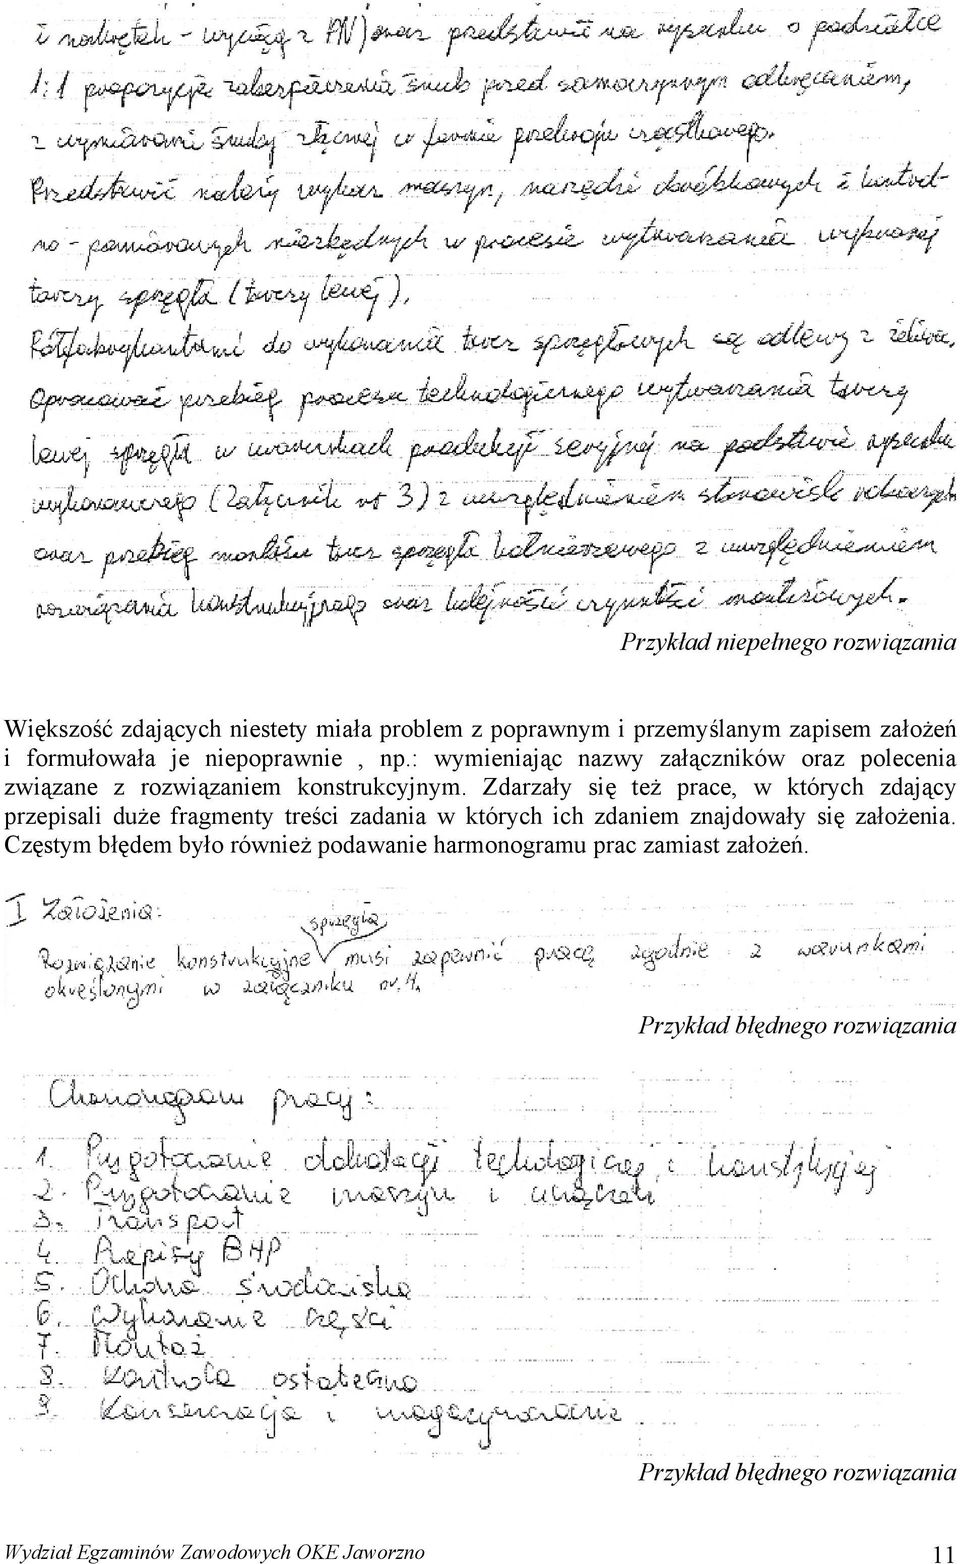 i nakrętek - wyciąg z PN) oraz przedstawić na rysunku o podziałce
1:1 propozycję zabezpieczenia śrub przed samoczynnym odkręcaniem,
z wymiarami śruby złącznej w formie przekroju cząstkowego.
Przedstawić należy wykaz maszyn, narzędzi i obróbkowych i kontrol-
no - pomiarowych niezbędnych w procesie wytwarzania wybranej
tarczy sprzęgła (tarczy lewej).
Półfabrykatami do wykonania tarcz sprzęgłowych są odlewy z żeliwa.
Opracować przebieg procesu technologicznego wytwarzania tarczy
lewej sprzęgła w warunkach produkcji seryjnej na podstawie rysunku
wykonawczego (Załącznik nr 3) z uwzględnieniem stanowisk roboczych
oraz przebieg montażu tarcz sprzęgła kołnierzowego z uwzględnieniem
rozwiązania konstrukcyjnego oraz kolejności czynności montażowych.
Przykład niepełnego rozwiązania
Większość zdających niestety miała problem z poprawnym i przemyślanym zapisem założeń
i formułowała je niepoprawnie , np.: wymieniając nazwy załączników oraz polecenia
związane z rozwiązaniem konstrukcyjnym. Zdarzały się też prace, w których zdający
przepisali duże fragmenty treści zadania w których ich zdaniem znajdowały się założenia.
Częstym błędem było również podawanie harmonogramu prac zamiast założeń.
I Założenia:
sprzęgła
Rozwiązanie konstrukcyjne musi zapewnić pracę zgodnie z warunkami
określonymi w załączniku nr. 4.
Przykład błędnego rozwiązania
Chronogram pracy:
1. Przygotowanie dokutacji technologicznej i konstrukcyjej
2. Przygotowanie maszyn i urządzeń
3. Transport
4. Przepisy BHP
5. Ochrona środowiska
6. Wykonanie części
7. Montaż
8. Kontrola ostateczna
9. Konserwacja i magazynowanie
Przykład błędnego rozwiązania
Wydział Egzaminów Zawodowych OKE Jaworzno 11